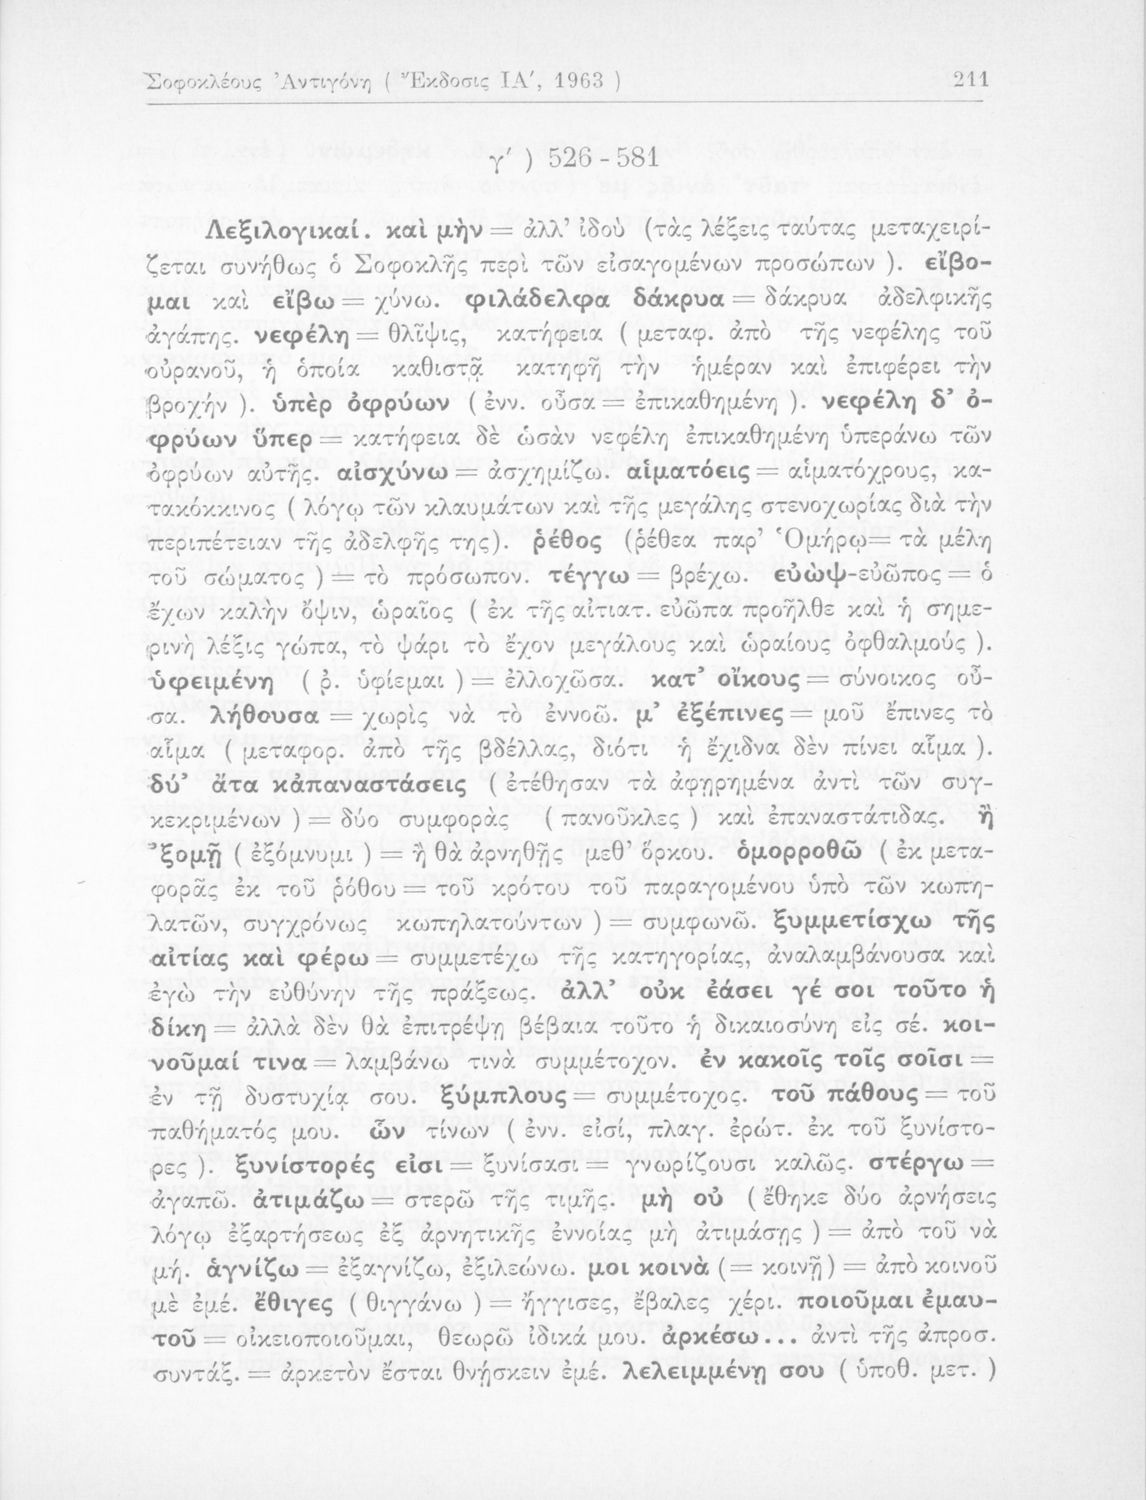 Σοφοκλέους Ἀντιγόνη ( Ἔκδοσις ΙΑ′, 1963 ) 211
γ′ ) 526 - 581
Λεξιλογικαί. καὶ μὴν = ἀλλ’ ἰδοὺ (τὰς λέξεις ταύτας μεταχειρί-
ζεται συνήθως ὁ Σοφοκλῆς περὶ τῶν εἰσαγομένων προσώπων ). εἴβο-
μαι καὶ εἴβω = χύνω. φιλάδελφα δάκρυα = δάκρυα ἀδελφικῆς
ἀγάπης. νεφέλη = θλῖψις, κατήφεια ( μεταφ. ἀπὸ τῆς νεφέλης τοῦ
οὐρανοῦ, ἡ ὁποία καθιστᾷ κατηφῆ τὴν ἡμέραν καὶ ἐπιφέρει τὴν
βροχήν ). ὑπὲρ ὀφρύων ( ἐνν. οὖσα = ἐπικαθημένη ). νεφέλη δ’ ὀ-
φρύων ὕπερ = κατήφεια δὲ ὡσὰν νεφέλη ἐπικαθημένη ὑπεράνω τῶν
ὀφρύων αὐτῆς. αἰσχύνω = ἀσχημίζω. αἱματόεις = αἱματόχρους, κα-
τακόκκινος ( λόγῳ τῶν κλαυμάτων καὶ τῆς μεγάλης στενοχωρίας διὰ τὴν
περιπέτειαν τῆς ἀδελφῆς της). ῥέθος (ῥέθεα παρ’ Ὁμήρῳ= τὰ μέλη
τοῦ σώματος ) = τὸ πρόσωπον. τέγγω = βρέχω. εὐὼψ-εὐῶπος = ὁ
ἔχων καλὴν ὄψιν, ὡραῖος ( ἐκ τῆς αἰτιατ. εὐῶπα προῆλθε καὶ ἡ σημε-
ρινὴ λέξις γώπα, τὸ ψάρι τὸ ἔχον μεγάλους καὶ ὡραίους ὀφθαλμούς ).
ὑφειμένη ( ῥ. ὑφίεμαι ) = ἐλλοχῶσα. κατ’ οἴκους = σύνοικος οὖ-
σα. λήθουσα = χωρὶς νὰ τὸ ἐννοῶ. μ’ ἐξέπινες = μοῦ ἔπινες τὸ
αἷμα ( μεταφορ. ἀπὸ τῆς βδέλλας, διότι ἡ ἔχιδνα δὲν πίνει αἷμα ).
δύ’ ἄτα κἀπαναστάσεις ( ἐτέθησαν τὰ ἀφῃρημένα ἀντὶ τῶν συγ-
κεκριμένων ) = δύο συμφορὰς ( πανοῦκλες ) καὶ ἐπαναστάτιδας. ἢ
’ξομῇ ( ἐξόμνυμι ) = ἢ θὰ ἀρνηθῇς μεθ’ ὅρκου. ὁμορροθῶ ( ἐκ μετα-
φορᾶς ἐκ τοῦ ῥόθου = τοῦ κρότου τοῦ παραγομένου ὑπὸ τῶν κωπη-
λατῶν, συγχρόνως κωπηλατούντων ) = συμφωνῶ. ξυμμετίσχω τῆς
αἰτίας καὶ φέρω = συμμετέχω τῆς κατηγορίας, ἀναλαμβάνουσα καὶ
ἐγὼ τὴν εὐθύνην τῆς πράξεως. ἀλλ’ οὐκ ἐάσει γέ σοι τοῦτο ἡ
δίκη = ἀλλὰ δὲν θὰ ἐπιτρέψῃ βέβαια τοῦτο ἡ δικαιοσύνη εἰς σέ. κοι-
νοῦμαί τινα = λαμβάνω τινὰ συμμέτοχον. ἐν κακοῖς τοῖς σοῖσι =
ἐν τῇ δυστυχίᾳ σου. ξύμπλους = συμμέτοχος. τοῦ πάθους = τοῦ
παθήματός μου. ὧν τίνων ( ἐνν. εἰσί, πλαγ. ἐρώτ. ἐκ τοῦ ξυνίστο-
ρες ). ξυνίστορές εἰσι = ξυνίσασι = γνωρίζουσι καλῶς. στέργω =
ἀγαπῶ. ἀτιμάζω = στερῶ τῆς τιμῆς. μὴ οὐ ( ἔθηκε δύο ἀρνήσεις
λόγῳ ἐξαρτήσεως ἐξ ἀρνητικῆς ἐννοίας μὴ ἀτιμάσῃς ) = ἀπὸ τοῦ νὰ
μή. ἁγνίζω = ἐξαγνίζω, ἐξιλεώνω. μοι κοινὰ (= κοινῇ) = ἀπὸ κοινοῦ
μὲ ἐμέ. ἔθιγες ( θιγγάνω ) = ἤγγισες, ἔβαλες χέρι. ποιοῦμαι ἐμαυ-
τοῦ = οἰκειοποιοῦμαι, θεωρῶ ἰδικά μου. ἀρκέσω... ἀντὶ τῆς ἀπροσ.
συντάξ. = ἀρκετὸν ἔσται θνῄσκειν ἐμέ. λελειμμένῃ σου ( ὑποθ. μετ. )